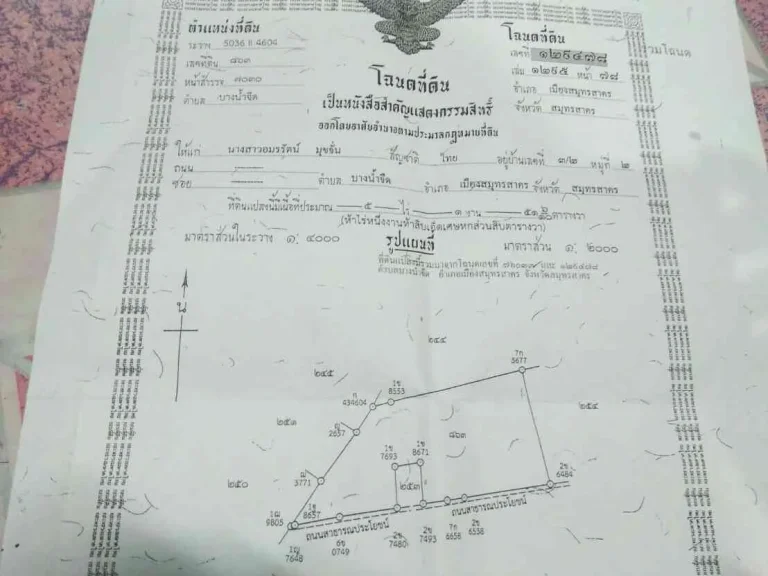 ตำแหน่งที่ดิน
ระวาง 5036 II 4604
เลขที่ดิน ๘๖๓
หน้าสำรวจ ๗๐๓๐
ตำบล บางน้ำจืด
โฉนดที่ดิน
เลขที่ ๑๒๙๔๗๘
เล่ม ๑๒๙๕ หน้า ๗๘
อำเภอ เมืองสมุทรสาคร
จังหวัด สมุทรสาคร
โฉนดที่ดิน
เป็นหนังสือสำคัญแสดงกรรมสิทธิ์
ออกโดยอาศัยอำนาจตามประมวลกฎหมายที่ดิน
ให้แก่ นางสาวอมรรัตน์ มุขชั่น สัญชาติ ไทย อยู่บ้านเลขที่ ๓/๒ หมู่ที่ ๒
ถนน
ซอย ตำบล บางน้ำจืด อำเภอ เมืองสมุทรสาคร จังหวัด สมุทรสาคร
ที่ดินแปลงนี้มีเนื้อที่ประมาณ ๕ ไร่ ๑ งาน ตารางวา
(ห้าไร่หนึ่งงานห้าสิบเอ็ดเศษหกส่วนสิบตารางวา)
มาตราส่วนในระวาง ๑: ๔๐๐๐ รูปแผนที่ มาตราส่วน ๑: ๒๐๐๐
ที่ดินแปลงนี้รวมมาจากโฉนดเลขที่ และ ๑๒๙๔๗๘
ตำบลบางน้ำจืด อำเภอเมืองสมุทรสาคร จังหวัดสมุทรสาคร
น
๒๔๔
๒๔๕
7ก
3677
1ข
8553
ก
434604
๒๕๔
๒๕๓
ญ
2637
๘๖๓
1ข
7693
1ข
8671
๒๕๓
2ข
6484
๒๕๐
ฝ
3771
1ฌ
9805
1ข
8657
ถนนสาธารณประโยชน์
ถนนสาธารณประโยชน์
1ญ
7648
6ข
0749
2ข
7480
2ข
7493
7ก
6658
2ข
6538